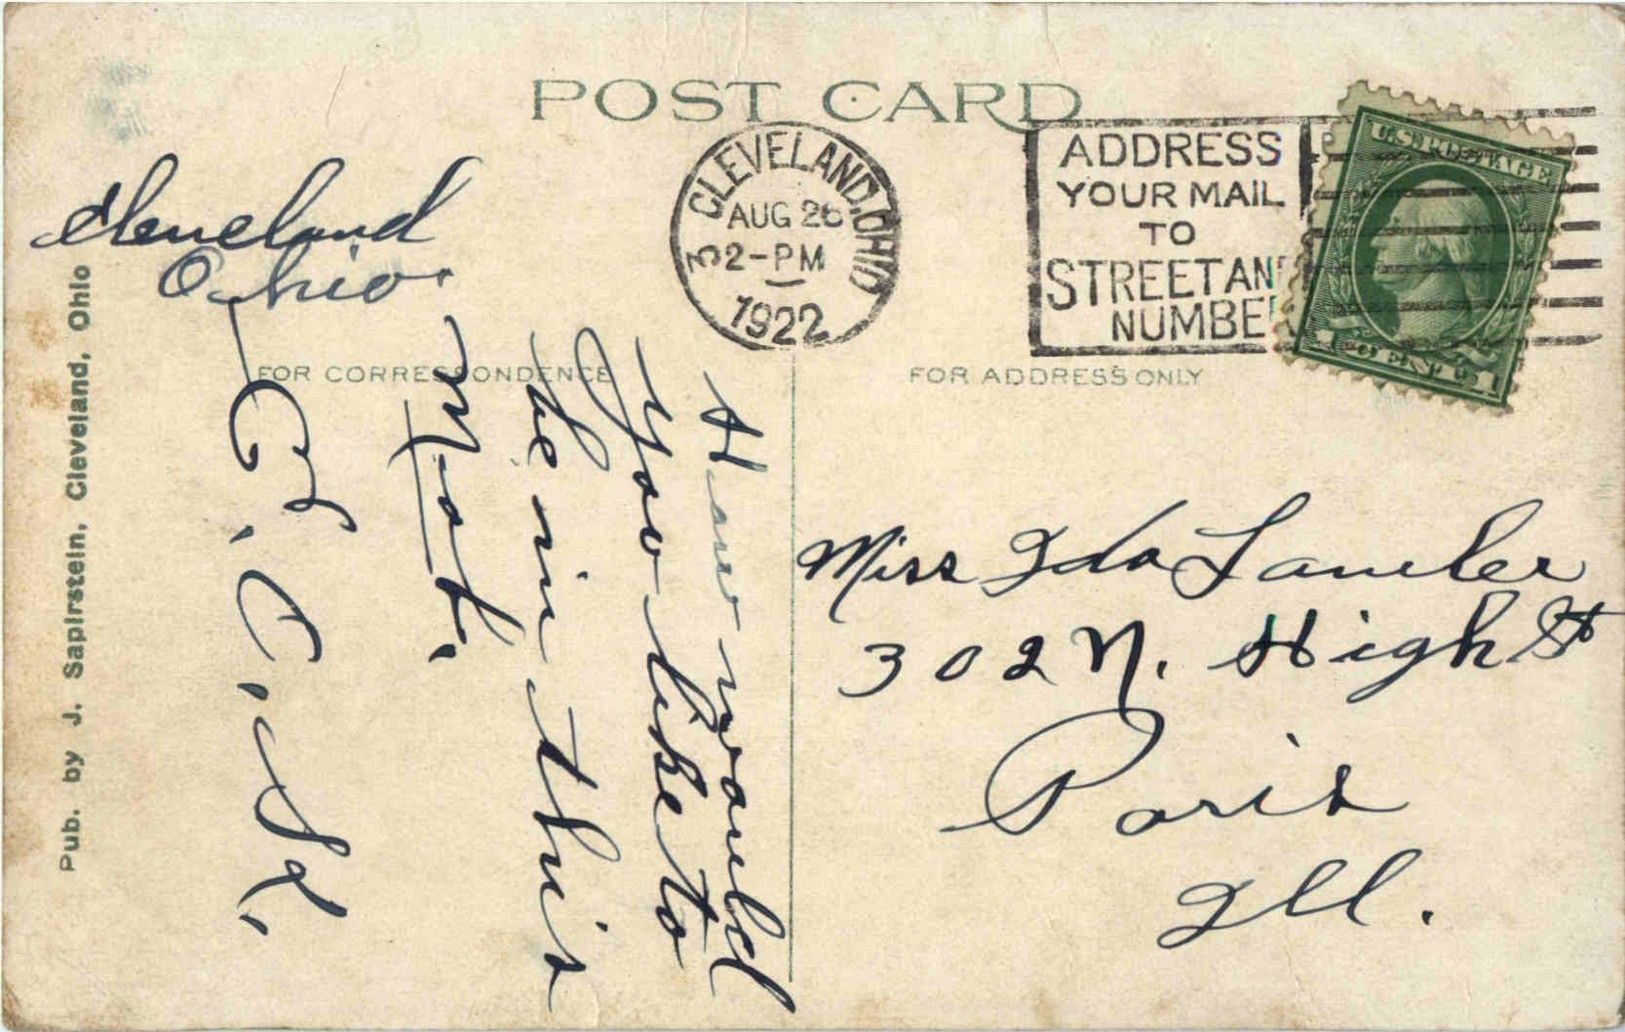 POST CARD
CLEVELAND, OHIO
3
AUG 26
2-PM
1922
ADDRESS
YOUR MAIL
TO
STREET AND
NUMBE
U.S. POSTAGE
1 CENT 1
FOR CORRESPONDENCE
FOR ADDRESS ONLY
Pub. by J. Sapirstein, Cleveland, Ohio
Cleveland
Ohio.
How would
you like to
be in this
Mob.
C. K.
Miss Ida
302 N. High St
Paris
Ill.